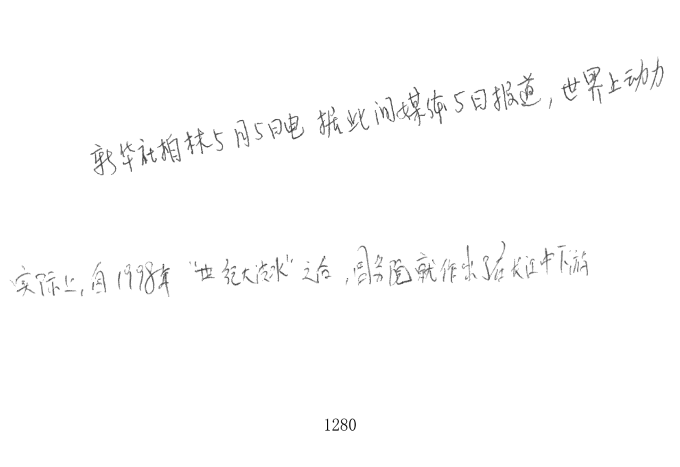 新华社柏林5月5日电 据此间媒体5日报道，世界上动力
实际上，自1998年“世纪大洪水”之后，国务院就作出了在长江中下游
1280